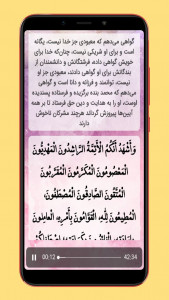 گواهی می‌دهم که معبودی جز خدا نیست، یگانه
است و برای او شریکی نیست، چنان‌که خدا برای
خویش گواهی داده، فرشتگانش و دانشمندان از
بندگانش برای او گواهی دادند، معبودی جز او
نیست، توانمند و فرزانه و دانا است و گواهی
می‌دهم که محمد بنده برگزیده و فرستاده پسندیده
اوست، او را به هدایت و دین حق فرستاد تا بر همه
آیین‌ها پیروزش گرداند هرچند مشرکان ناخوش
دارند
وَأَشْهَدُ أَنَّكُمُ الْأَئِمَّةُ الرَّاشِدُونَ الْمَهْدِيُّونَ
الْمَعْصُومُونَ الْمُكَرَّمُونَ الْمُقَرَّبُونَ
الْمُتَّقُونَ الصَّادِقُونَ الْمُصْطَفَوْنَ،
الْمُطِيعُونَ لِلَّهِ، الْقَوَّامُونَ بِأَمْرِهِ، الْعامِلُونَ
00:12
42:34